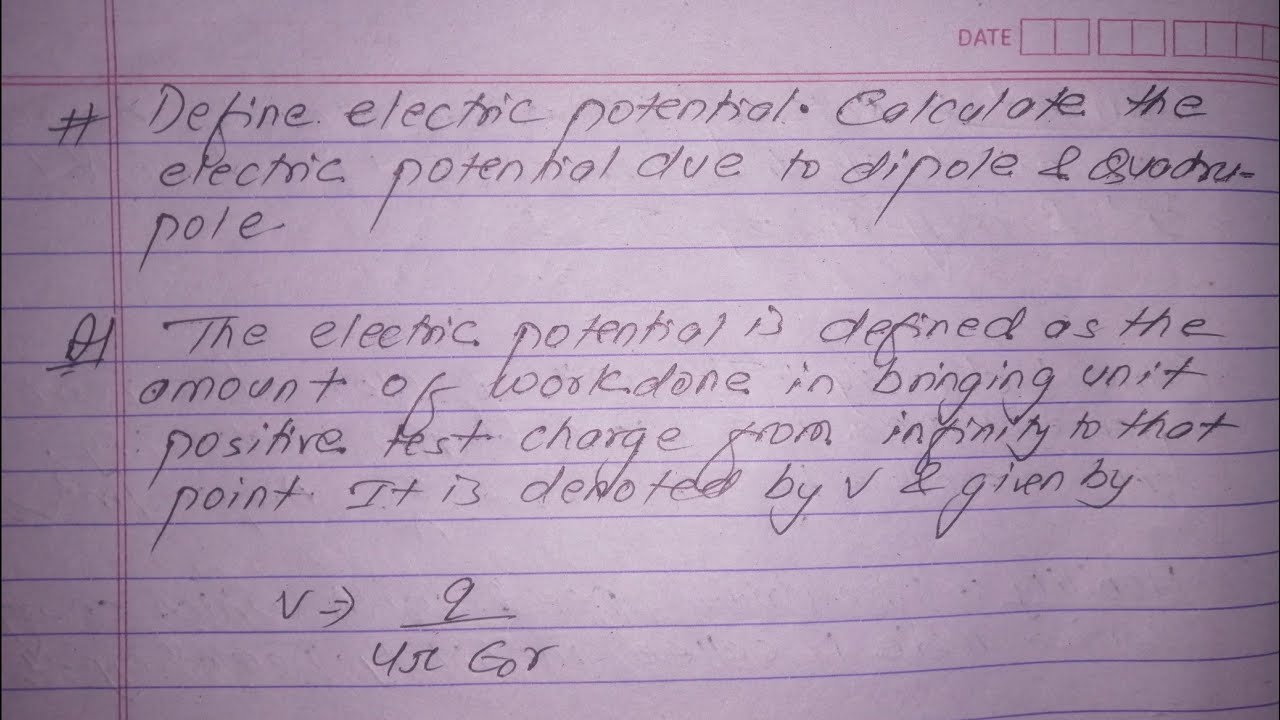 DATE
# Define electric potential. Calculate the
electric potential due to dipole & Quadru-
pole
The electric potential is defined as the
amount of workdone in bringing unit
positive test charge from infinity to that
point. It is denoted by V & given by
V ⇒ q
4π ε₀r